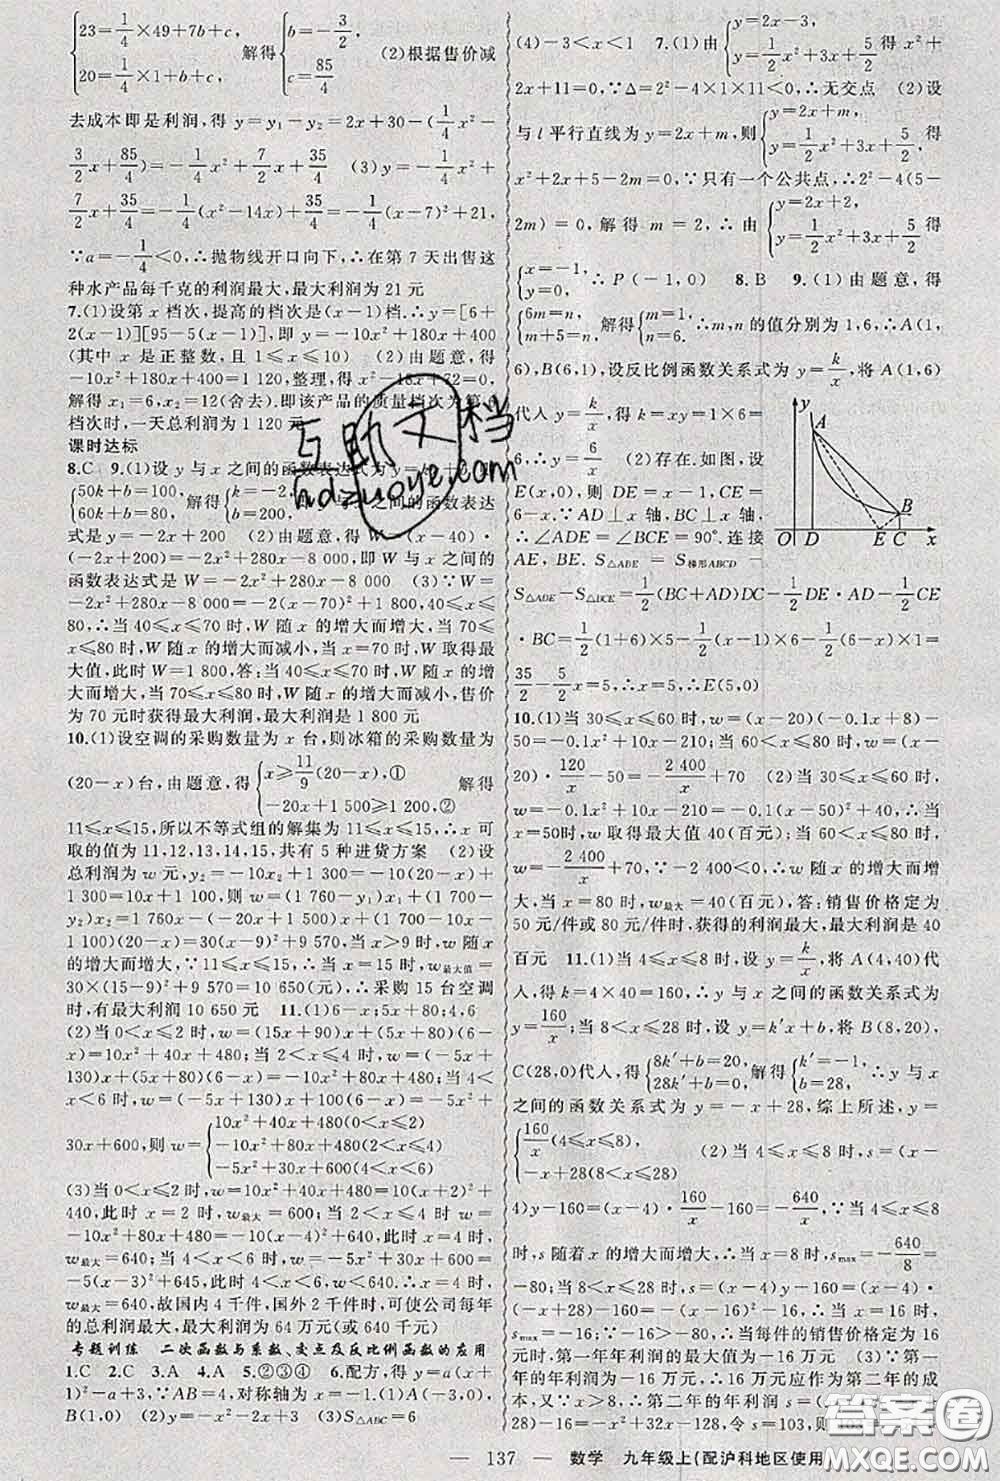 {23=1/4×49+7b+c, 20=1/4×1+b+c, 解得{b=-3/2, c=85/4 (2)根据售价减
去成本即是利润,得 y=y₁-y₂=2x+30-(1/4x²-
3/2x+85/4)=-1/4x²+7/2x+35/4 (3)y=-1/4x²+
7/2x+35/4=-1/4(x²-14x)+35/4=-1/4(x-7)²+21.
∵a=-1/4<0,∴抛物线开口向下,∴在第 7 天出售这
种水产品每千克的利润最大,最大利润为 21 元
7.(1)设第 x 档次,提高的档次是(x-1)档.∴y=[6+
2(x-1)][95-5(x-1)],即 y=-10x²+180x+400
(其中 x 是正整数,且 1≤x≤10) (2)由题意,得
-10x²+180x+400=1 120,整理,得 x²-18x+72=0,
解得 x₁=6,x₂=12(舍去).即该产品的质量档次为第 6
档次时,一天总利润为 1 120 元
课时达标
8.C 9.(1)设 y 与 x 之间的函数表达式为 y=
{50k+b=100, 60k+b=80, 解得{k=-2, b=200, 之间的函数表达
式是 y=-2x+200 (2)由题意,得 W=(x-40)·
(-2x+200)=-2x²+280x-8 000,即 W 与 x 之间的
函数表达式是 W=-2x²+280x-8 000 (3)∵W=
-2x²+280x-8 000=-2(x-70)²+1 800,40≤x≤
80,∴当 40≤x≤70 时,W 随 x 的增大而增大,当 70≤
x≤80 时,W 随 x 的增大而减小,当 x=70 时,W 取得最
大值,此时 W=1 800,答:当 40≤x≤70 时,W 随 x 的增
大而增大,当 70≤x≤80 时,W 随 x 的增大而减小,售价
为 70 元时获得最大利润,最大利润是 1 800 元
10.(1)设空调的采购数量为 x 台,则冰箱的采购数量为
(20-x)台,由题意,得{x≥11/9(20-x),① -20x+1 500≥1 200,② 解得
11≤x≤15,所以不等式组的解集为 11≤x≤15,∴x 可
取的值为 11,12,13,14,15,共有 5 种进货方案 (2)设
总利润为 w 元,y₂=-10x₂+1 300=-10(20-x)+
1 300=10x+1 100,则 w=(1 760-y₁)x₁+(1 700-
y₂)x₂=1 760x-(-20x+1 500)x+(1 700-10x-
1 100)(20-x)=30(x-9)²+9 570,当 x>9 时,w 随 x
的增大而增大,∵11≤x≤15,∴当 x=15 时,w最大值=
30×(15-9)²+9 570=10 650(元),∴采购 15 台空调
时,有最大利润 10 650 元 11.(1)6-x;5x+80;4,6
(2)当 0<x≤2 时,w=(15x+90)x+(5x+80)(6-
x)=10x²+40x+480;当 2<x≤4 时,w=(-5x+
130)x+(5x+80)(6-x)=-10x²+80x+480;当
4<x<6 时,w=(-5x+130)x+400(6-x)=-5x²+
30x+600,则 w={10x²+40x+480(0<x≤2) -10x²+80x+480(2<x≤4) -5x²+30x+600(4<x<6)
(3)当 0<x≤2 时,w=10x²+40x+480=10(x+2)²+
440,此时 x=2 时,w最大=600;当 2<x≤4 时,w=
-10x²+80x+480=-10(x-4)²+640,此时 x=4 时,
w最大=640;当 4<x<6 时,w=-5x²+30x+600=
-5(x-3)²+645,∴当 4<x<6 时,w<640,∴x=4 时,
w最大=640,故国内 4 千件,国外 2 千件时,可使公司每年
的总利润最大,最大利润为 64 万元(或 640 千元)
专题训练 二次函数与系数、交点及反比例函数的应用
1.C 2.C 3.A 4.A 5.②③④ 6.配方,得 y=a(x+
1)²-a+3,∵AB=4,对称轴为 x=-1,∴A(-3,0),
B(1,0) (2)y=-x²-2x+3 (3)S△ABC=6
(4)-3<x<1 7.(1)由{y=2x-3, y=1/2x²+3x+5/2 得 x²+
2x+11=0,∵Δ=2²-4×1×11<0,∴无交点 (2)设
与 l 平行直线为 y=2x+m,则{y=2x+m, y=1/2x²+3x+5/2, 得
x²+2x+5-2m=0,∵只有一个公共点,∴2²-4(5-
2m)=0,解得 m=2,∴由{y=2x+2, y=1/2x²+3x+5/2 得
{x=-1, y=0, ∴P(-1,0) 8.B 9.(1)由题意,得
{6m=n, m+5=n, 解得{m=1, n=6. ∴m,n 的值分别为 1,6,∴A(1,
6),B(6,1),设反比例函数关系式为 y=k/x,将 A(1,6)
代人 y=k/x,得 k=xy=1×6=
6,∴y=6/x (2)存在.如图,设
E(x,0),则 DE=x-1,CE=
6-x.∵AD⊥x 轴,BC⊥x 轴,
∴∠ADE=∠BCE=90°.连接
AE,BE. S△ABE=S梯形ABCD-
S△ADE-S△BCE=1/2(BC+AD)DC-1/2DE·AD-1/2CE
·BC=1/2(1+6)×5-1/2(x-1)×6-1/2(6-x)×1=
35/2-5/2x=5,∴x=5,∴E(5,0)
10.(1)当 30≤x≤60 时,w=(x-20)(-0.1x+8)-
50=-0.1x²+10x-210;当 60<x≤80 时,w=(x-
20)·120/x-50=-2 400/x+70 (2)当 30≤x≤60 时,
w=-0.1x²+10x-210=-0.1(x-50)²+40,∴当
x=50时,w 取得最大值 40(百元);当 60<x≤80 时,
w=-2 400/x+70,∵-2 400<0,∴w 随 x 的增大而增
大,当 x=80 时,w最大=40(百元),答:销售价格定为
50 元/件或 80 元/件时,获得的年利润最大,最大利润是 40
百元 11.(1)当 4≤x≤8 时,设 y=k/x,将 A(4,40)代
人,得 k=4×40=160,∴y 与 x 之间的函数关系式为
y=160/x;当 8<x≤28 时,设 y=k′x+b,将 B(8,20),
C(28,0)代人,得{8k′+b=20, 28k′+b=0, 解得{k′=-1, b=28, ∴y 与 x
之间的函数关系式为 y=-x+28,综上所述,y=
{160/x(4≤x≤8), -x+28(8<x≤28) (2)当 4≤x≤8 时,s=(x-
4)y-160=(x-4)·160/x-160=-640/x,∵当 4≤x≤8
时,s 随着 x 的增大而增大,∴当 x=8 时,smax=-640/8=
-80;当 8<x≤28 时,s=(x-4)y-160=(x-4)·
(-x+28)-160=-(x-16)²-16,∴当 x=16 时,
smax=-16,∵-16>-80,∴当每件的销售价格定为 16
元时,第一年年利润的最大值为-16 万元 (3)∵第一
年的年利润为-16 万元,∴16 万元应作为第二年的成
本,又∵x>8,∴第二年的年利润 s=(x-4)(-x+
28)-16=-x²+32x-128,令 s=103,则103
— 137 — 数学 九年级上(配沪科地区使用
互助文档
hdzuoye.com
答案圈
MXQE.COM
O D E C x
A
B